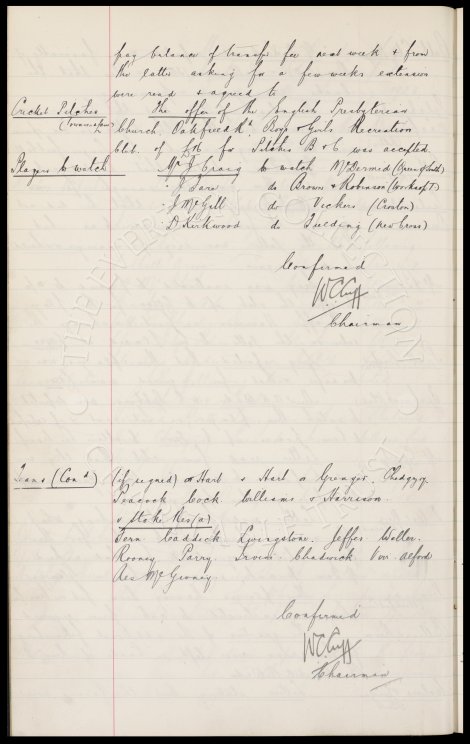 pay balance of transfer fee next week & from
the latter asking for a few weeks extension
were read & agreed to
Cricket Pitches The offer of the English Presbyterian
Church Oakfield Rd. Boys & Girls Recreation
Club. of for Pitches B & C was accepted.
Players to watch Mr J. Craig to watch McDermid (Queen of South)
" J Sare do Brown & Robinson (Worksop T)
" J McGill do Vickers (Croston)
" D. Kirkwood do Fielding (New Cross)
Confirmed
W.C. Cuff
Chairman
Teams (Con'd) (if signed) or Hart & Hart or Chedgzoy.
Peacock Cock Williams & Harrison.
v Stoke Res (a)
Fern Caddick Livingstone. Jeffes Waller.
Rooney Parry Irvine Chadwick Alford
Res McGivney
Confirmed
W.C. Cuff
Chairman
THE EVERTON COLLECTION